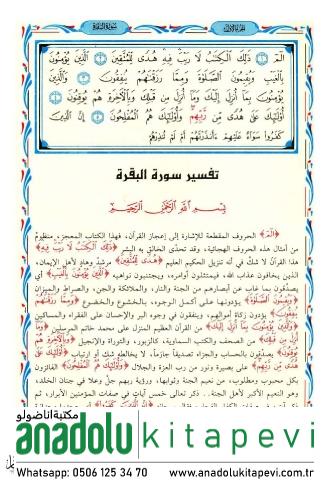 الجزء الأول
سورة البقرة
الٓمٓ ذَٰلِكَ الْكِتَابُ لَا رَيْبَ فِيهِ هُدًى لِّلْمُتَّقِينَ الَّذِينَ يُؤْمِنُونَ
بِالْغَيْبِ وَيُقِيمُونَ الصَّلَاةَ وَمِمَّا رَزَقْنَاهُمْ يُنفِقُونَ وَالَّذِينَ
يُؤْمِنُونَ بِمَا أُنزِلَ إِلَيْكَ وَمَا أُنزِلَ مِن قَبْلِكَ وَبِالْآخِرَةِ هُمْ يُوقِنُونَ
أُولَٰئِكَ عَلَىٰ هُدًى مِّن رَّبِّهِمْ وَأُولَٰئِكَ هُمُ الْمُفْلِحُونَ إِنَّ الَّذِينَ
كَفَرُوا سَوَاءٌ عَلَيْهِمْ أَأَنذَرْتَهُمْ أَمْ لَمْ تُنذِرْهُمْ
تفسير سورة البقرة
بسم الله الرحمن الرحيم
﴿الٓمٓ﴾ الحروف المقطعة للإشارة إلى إعجاز القرآن، فهذا الكتاب المعجز، منظوم
من أمثال هذه الحروف الهجائية، وقد تحدّى الخالق به البشر ﴿ذَٰلِكَ الْكِتَابُ لَا رَيْبَ فِيهِ﴾
هذا القرآن لا شك في أنه تنزيل الحكيم العليم ﴿هُدًى لِّلْمُتَّقِينَ﴾ مرشد وهادٍ لأهل الإيمان،
الذين يخافون عذاب الله، فيمتثلون أوامره، ويجتنبون نواهيه ﴿الَّذِينَ يُؤْمِنُونَ بِالْغَيْبِ﴾ أي
يصدّقون بما غاب عن أبصارهم من الجنة والنار، والملائكة والجن، والصراط والميزان
﴿وَيُقِيمُونَ الصَّلَاةَ﴾ يؤدونها على أكمل الوجوه، بالخشوع والخضوع ﴿وَمِمَّا رَزَقْنَاهُمْ
يُنفِقُونَ﴾ يؤدون زكاة أموالهم، وينفقون في وجوه البر والإحسان على الفقراء والمساكين
﴿وَالَّذِينَ يُؤْمِنُونَ بِمَا أُنزِلَ إِلَيْكَ﴾ من القرآن العظيم المنزل على محمد خاتم المرسلين ﴿وَمَا
أُنزِلَ مِن قَبْلِكَ﴾ من الصحف والكتب السماوية، كالزبور، والتوراة والإنجيل ﴿وَبِالْآخِرَةِ هُمْ
يُوقِنُونَ﴾ يصدّقون بالحساب والجزاء تصديقاً جازماً، لا يخالطه شك أو ارتياب ﴿أُولَٰئِكَ
عَلَىٰ هُدًى مِّن رَّبِّهِمْ﴾ على بصيرة ونور من رب العزة والجلال ﴿وَأُولَٰئِكَ هُمُ الْمُفْلِحُونَ﴾ الفائزون
بكل محبوب ومطلوب، من نعيم الجنة وثوابها، ورؤية ربهم جلّ وعلا في جنان الخلد،
وهو النعيم الأكبر لأهل الجنة.. ذكر تعالى خمس آيات في صفات المؤمنين الأبرار، ثم
مكتبة اناضولو
anadolu kitapevi
Whatsapp: 0506 125 34 70 www.anadolukitapevi.com.tr